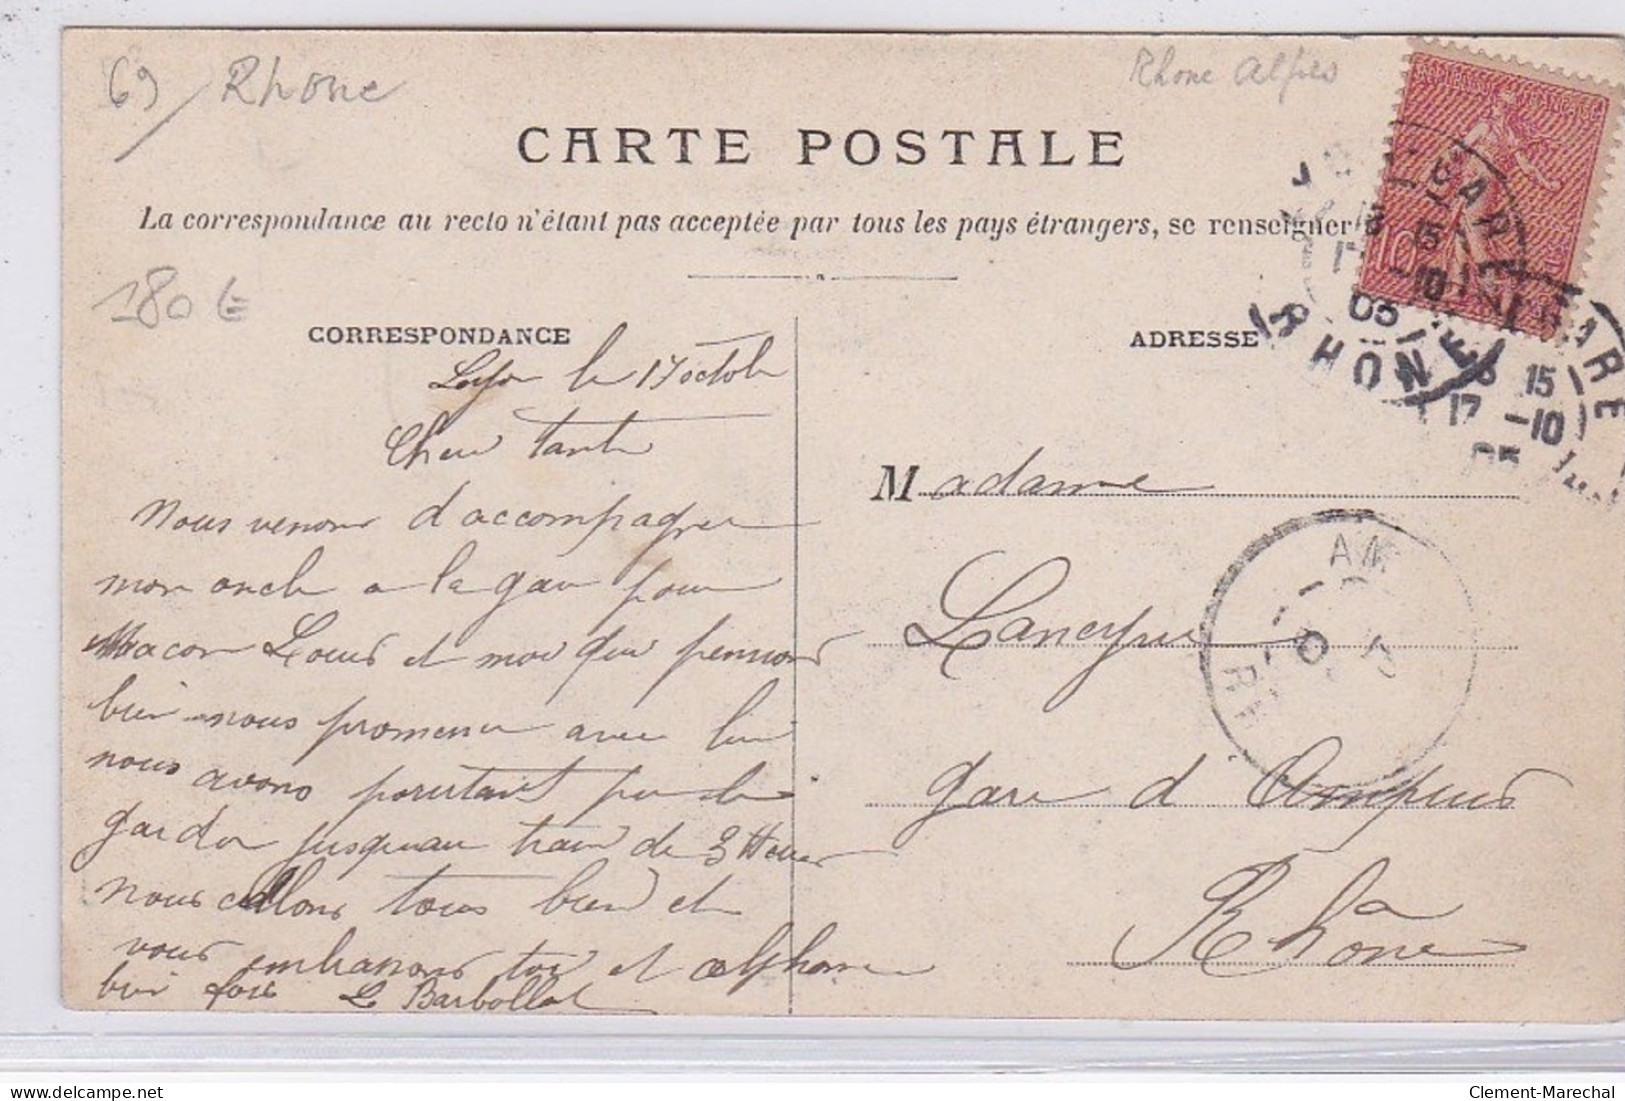 69 / Rhone
Rhone Alpes
CARTE POSTALE
La correspondance au recto n'étant pas acceptée par tous les pays étrangers, se renseigner
180 E
CORRESPONDANCE
ADRESSE
Lyon le 17 octob
Cher Tante
Nous venons d'accompagner
mon oncle a la gare pour
Macon Louis et moi qui pensions
bien nous promener avec lui
nous avons pourtant pu le
garder jusqu'au train de 3 Heures
nous allons tous bien et
vous embrassons toi et Alphonse
bien fort L Barbollat
Madame
Laneyrie
gare d'Ampuis
Rhône
10
GARE
RHONE
15
17 -10
05
GARE
15
17 -10
05
AM
RH
delcampe.net
Clement-Marechal